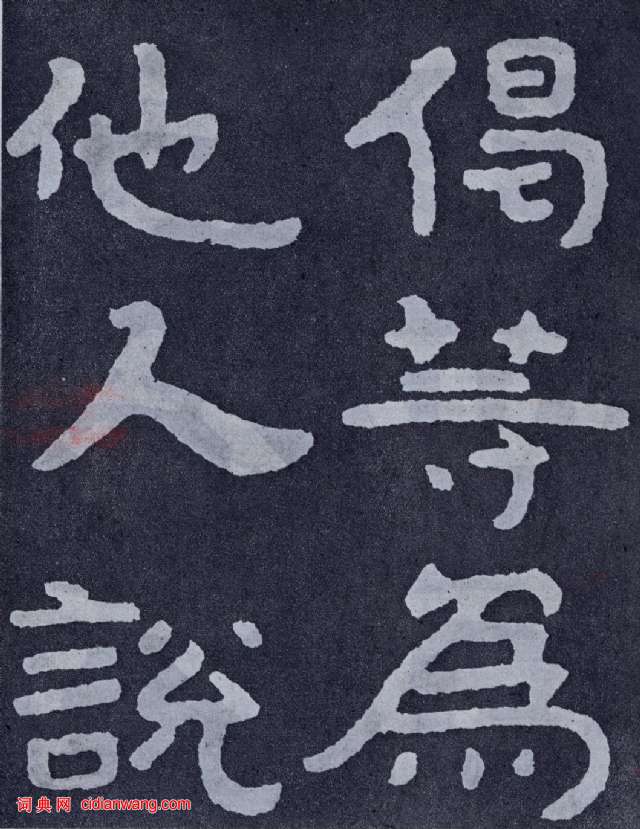 偈等為
他人說
词典网 cidianwang.com